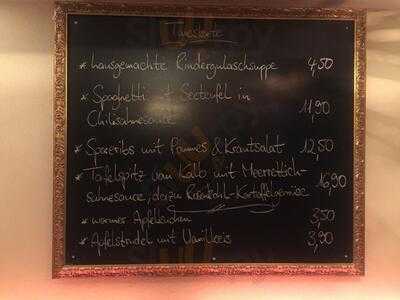 Tageskarte
* hausgemachte Rindergulaschsuppe 4,50
* Spaghetti mit Seeteufel in
Chilisahnesauce 11,90
* Spareribs mit Pommes & Krautsalat 12,50
* Tafelspitz vom Kalb mit Meerrettich-
sahnesauce, dazu Rosenkohl-Kartoffelgemüse 16,90
* warmer Apfelkuchen 3,50
* Apfelstrudel mit Vanilleeis 3,90